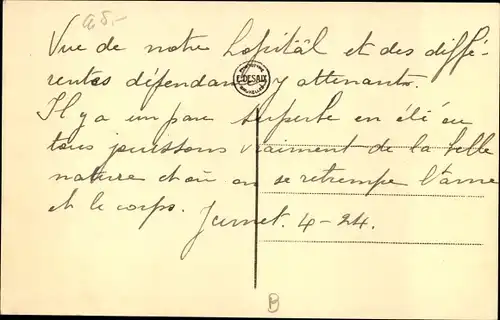 a5.-
Vue de notre hopitâl et des diffé-
rentes défendances y attenants.
E. DESAIX
Il y a un parc superbe en été ou
tous jouissons vraiment de la belle
nature et où on se retrempe l'ame
et le corps. Jumet. 4-24.
B